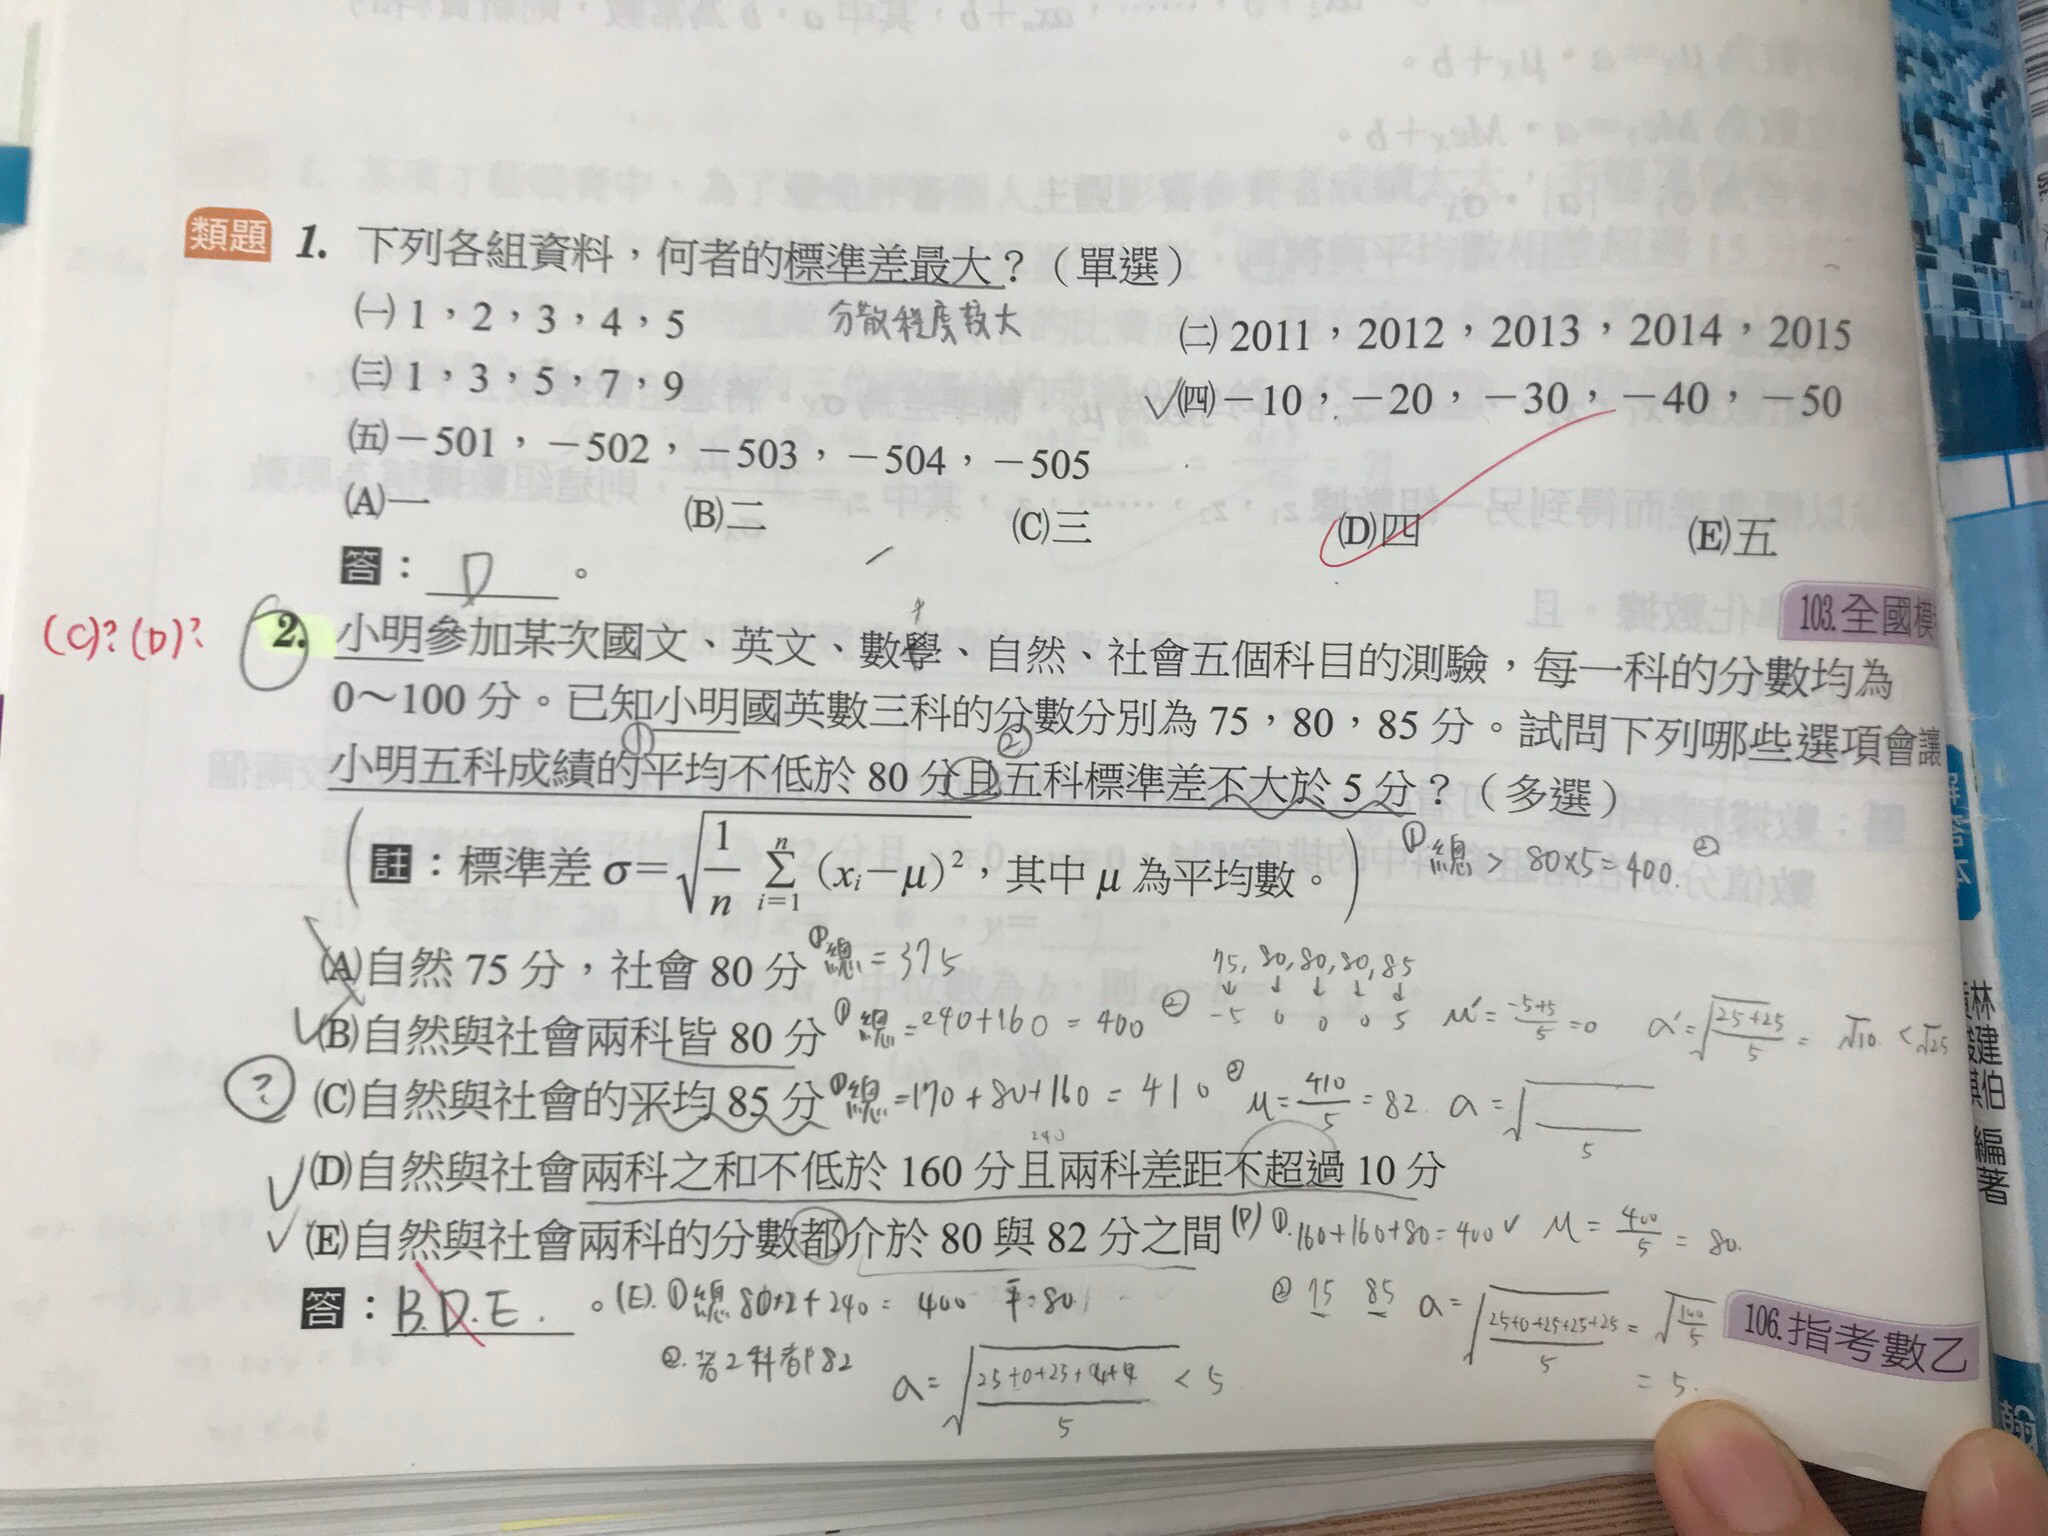 類題 1. 下列各組資料，何者的標準差最大？（單選）
分散程度較大
㈠ 1，2，3，4，5
㈡ 2011，2012，2013，2014，2015
㈢ 1，3，5，7，9
✓㈣ －10，－20，－30，－40，－50
㈤ －501，－502，－503，－504，－505
(A)一 (B)二 (C)三 (D)四 (E)五
答：D。
103.全國模
(C)? (D)?
2. 小明參加某次國文、英文、數學、自然、社會五個科目的測驗，每一科的分數均為
0～100 分。已知小明國英數三科的分數分別為 75，80，85 分。試問下列哪些選項會讓
① ②
小明五科成績的平均不低於 80 分且五科標準差不大於 5 分？（多選）
（註：標準差 σ＝√(1/n Σ_{i=1}^{n} (xi－μ)²)，其中 μ 為平均數。）
① 總 > 80×5=400. ②
(A)自然 75 分，社會 80 分 ① 總 = 375
75, 80, 80, 80, 85
↓ ↓ ↓ ↓ ↓
✓(B)自然與社會兩科皆 80 分 ① 總 =240+160 = 400 ② -5 0 0 0 5 μ'= (-5+5)/5 =0 a'=√((25+25)/5) = √10 <√25
? (C)自然與社會的平均 85 分 ① 總 =170+80+160 = 410 ② μ= 410/5 = 82. a =√( /5)
240
✓(D)自然與社會兩科之和不低於 160 分且兩科差距不超過 10 分
✓(E)自然與社會兩科的分數都介於 80 與 82 分之間 (D) ①.160+160+80=400 ✓ μ = 400/5 = 80.
答：B.D.E.。
(E). ① 總 80×2+240 = 400 平=80
② 75 85 a=√((25+0+25+25+25)/5) = √(100/5)
= 5.
②. 若2科都82 a=√((25+0+25+4+4)/5) < 5
106.指考數乙
林建伯
編著
解答本
翰